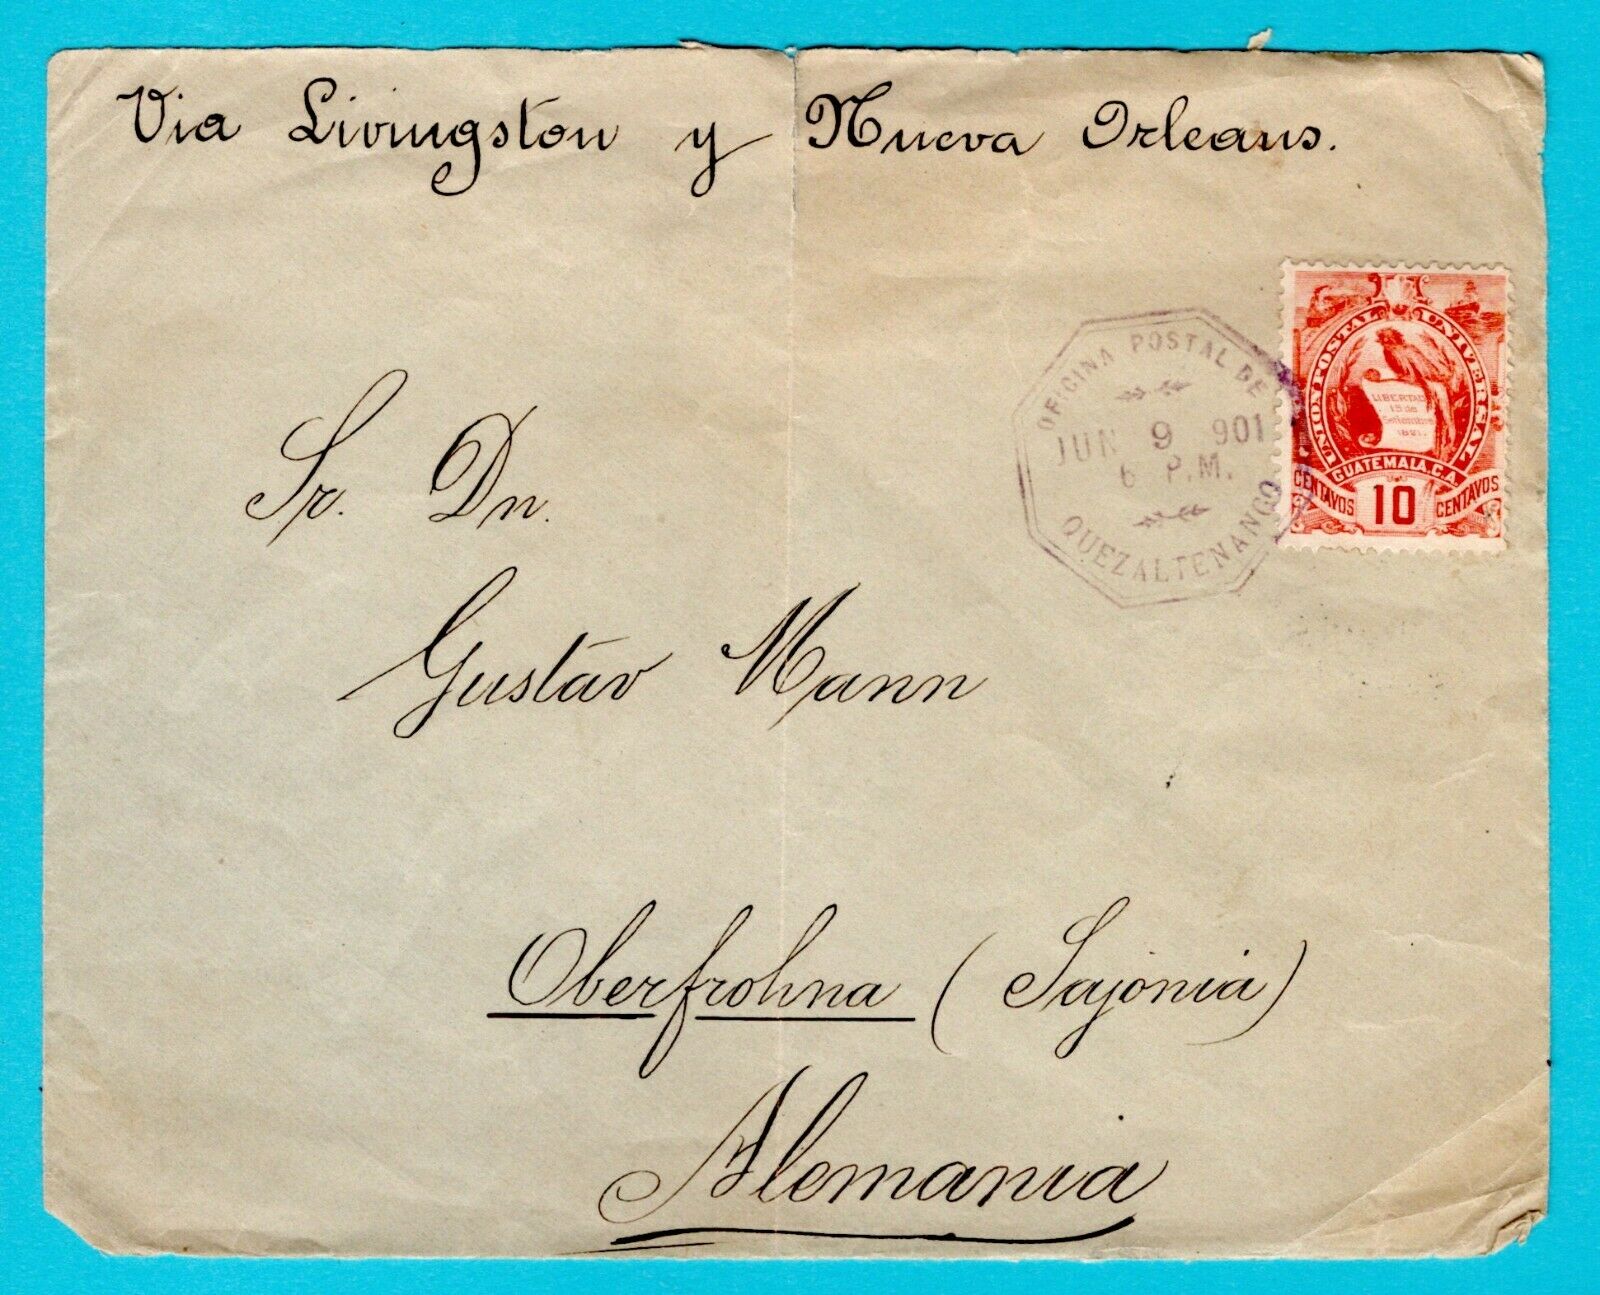 Via Livingston y Nueva Orleans.
OFICINA POSTAL DE
JUN 9 901
6 P.M.
QUEZALTENANGO
UNION POSTAL UNIVERSAL
LIBERTAD
15 de
Setiembre
1821.
GUATEMALA, C.A.
CENTAVOS 10 CENTAVOS
Sr. Dn.
Gustav Mann
Oberfrohna (Sajónia)
Alemania